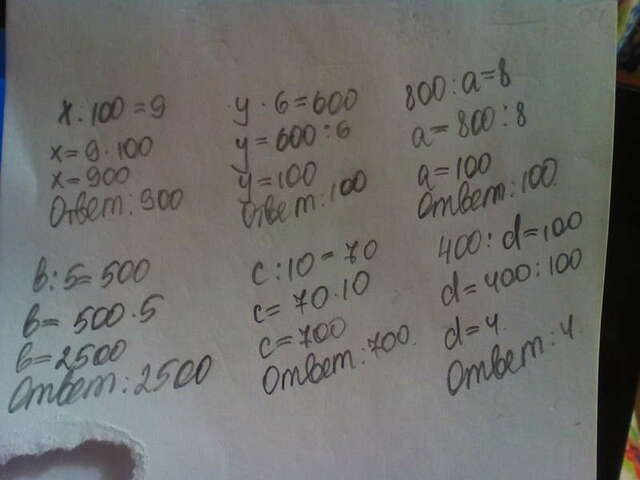 x : 100 = 9
x = 9 · 100
x = 900
Ответ: 900
y · 6 = 600
y = 600 : 6
y = 100
Ответ: 100
800 : a = 8
a = 800 : 8
a = 100
Ответ: 100.
в : 5 = 500
в = 500 · 5
в = 2500
Ответ: 2500
c : 10 = 70
c = 70 · 10
c = 700
Ответ: 700.
400 : d = 100
d = 400 : 100
d = 4.
Ответ: 4.